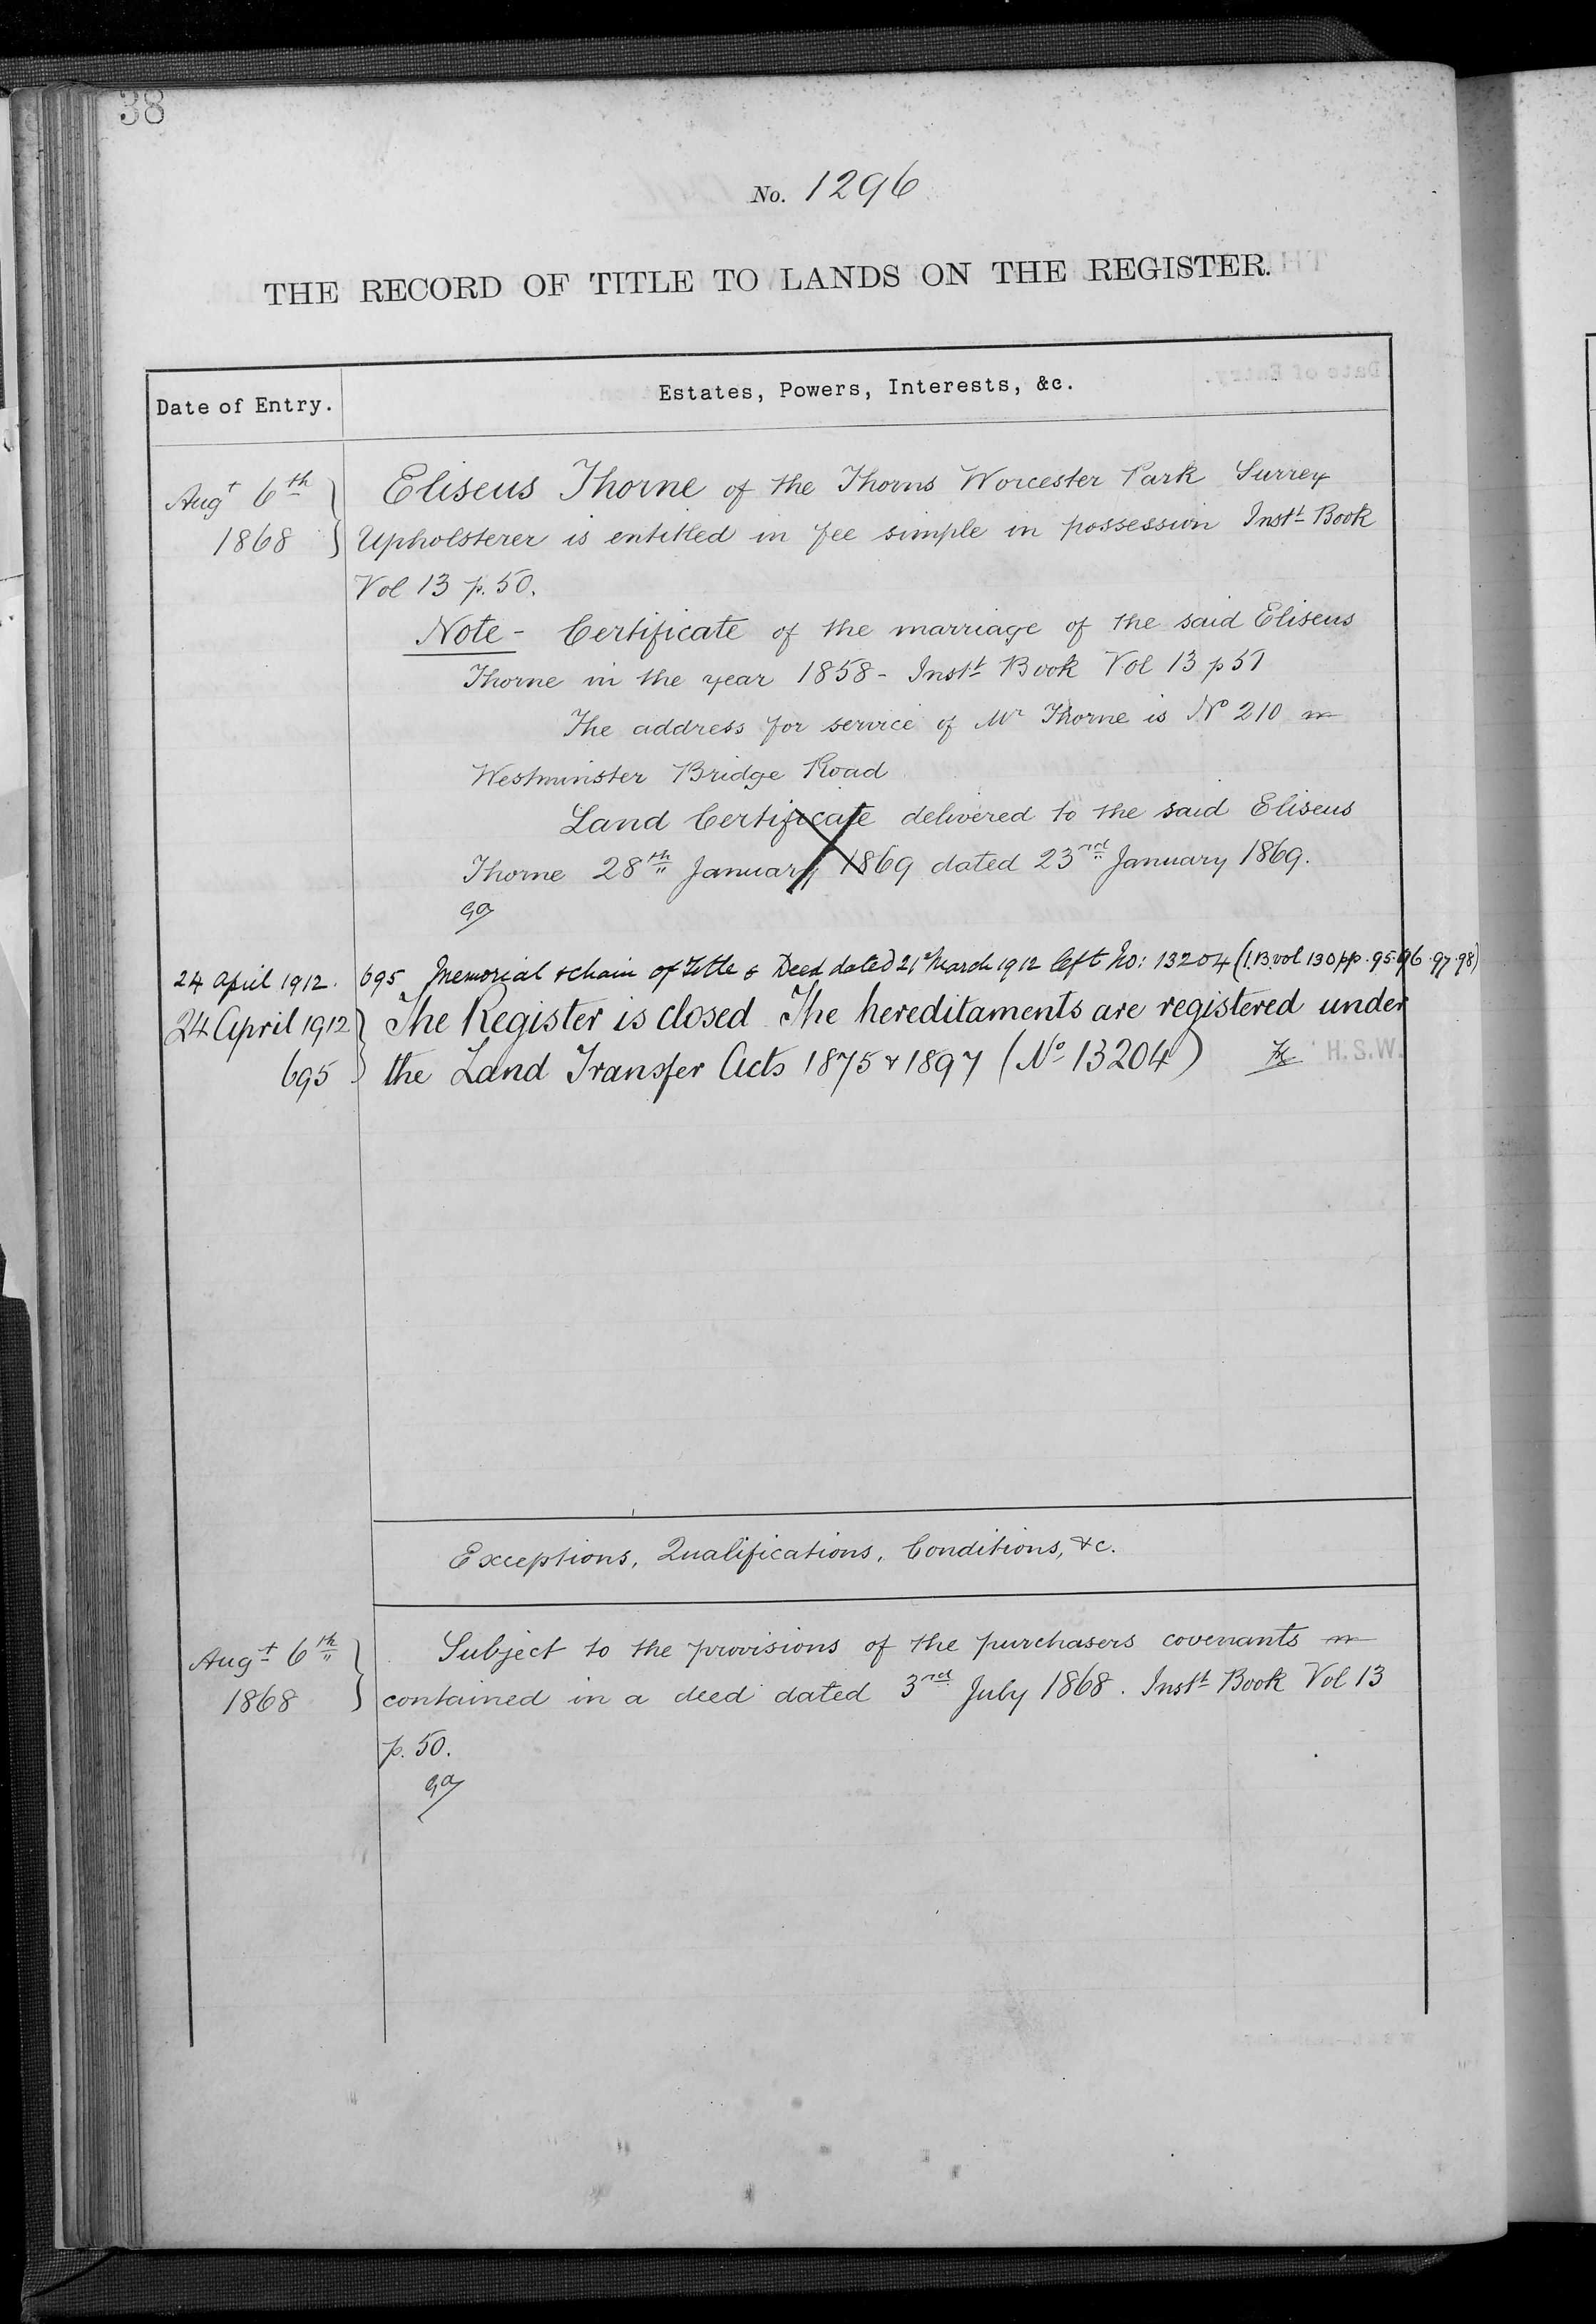 38
No. 1296
THE RECORD OF TITLE TO LANDS ON THE REGISTER.
Date of Entry.
Estates, Powers, Interests, &c.
Augt 6th
1868
Eliseus Thorne of the Thorns Worcester Park Surrey
Upholsterer is entitled in fee simple in possession Instt Book
Vol 13 p. 50.
Note - Certificate of the marriage of the said Eliseus
Thorne in the year 1858 - Instt Book Vol 13 p 51
The address for service of Mr Thorne is No 210
Westminster Bridge Road
Land Certificate delivered to the said Eliseus
Thorne 28th January 1869 dated 23rd January 1869.
24 April 1912. 695 Memorial & chain of Title & Deed dated 21st March 1912 left No: 13204 (I.B. vol 130 pp. 95.96.97.98)
24 April 1912 The Register is closed. The hereditaments are registered under
695 the Land Transfer Acts 1875 & 1897 (No 13204) H.S.W.
Exceptions, Qualifications, Conditions, &c.
Augt 6th
1868
Subject to the provisions of the purchasers covenants
contained in a deed dated 3rd July 1868. Instt Book Vol 13
p. 50.